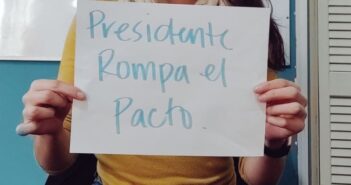 Presidente
Rompa el
Pacto.